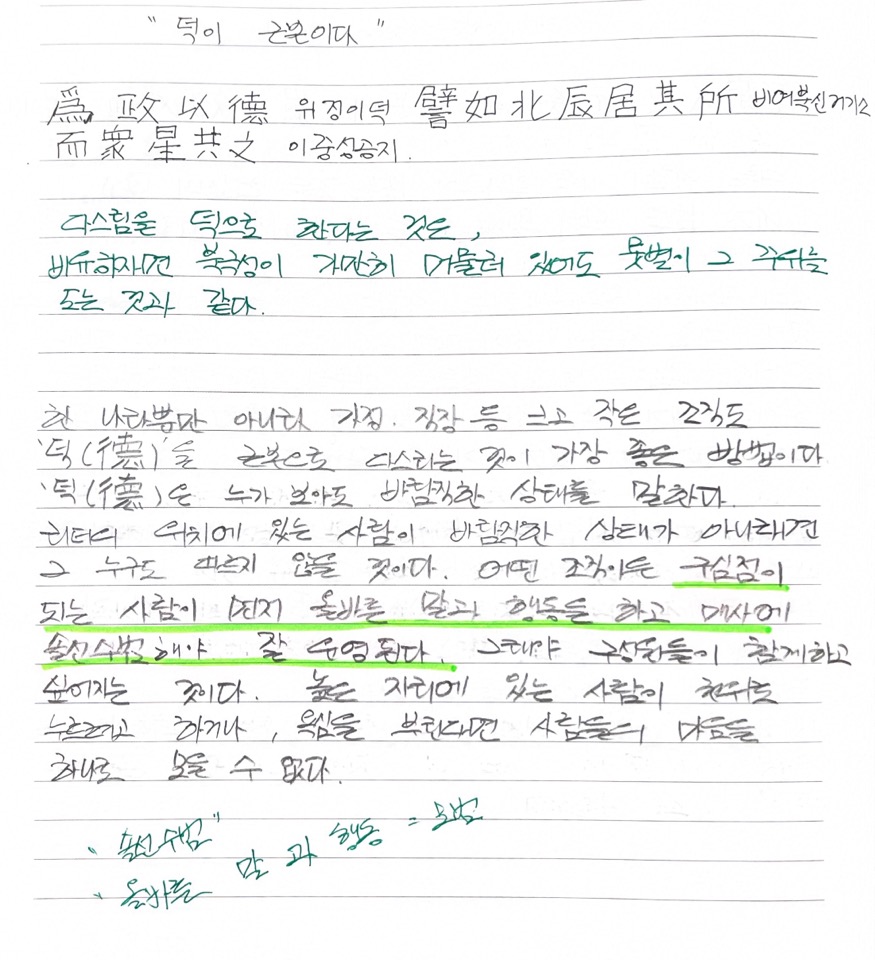 "덕이 근본이다"
爲政以德 위정이덕 譬如北辰居其所 비여북신거기소
而衆星共之 이중성공지.
다스림을 덕으로 한다는 것은,
비유하자면 북극성이 가만히 머물러 있어도 뭇별이 그 주위를
도는 것과 같다.
한 나라뿐만 아니라 가정. 직장 등 크고 작은 조직도
'덕(德)'을 근본으로 다스리는 것이 가장 좋은 방법이다
'덕(德)은 누가 보아도 바람직한 상태를 말한다.
리더의 위치에 있는 사람이 바람직한 상태가 아니라면
그 누구도 따르지 않을 것이다. 어떤 조직이든 구심점이
되는 사람이 먼저 올바른 말과 행동을 하고 매사에
솔선수범해야 잘 운영된다. 그래야 구성원들이 함께하고
싶어지는 것이다. 높은 자리에 있는 사람이 권위로
누르려고 하거나, 욕심을 부린다면 사람들의 마음을
하나로 모을 수 없다.
"솔선수범"
"올바른 말과 행동 = 모범